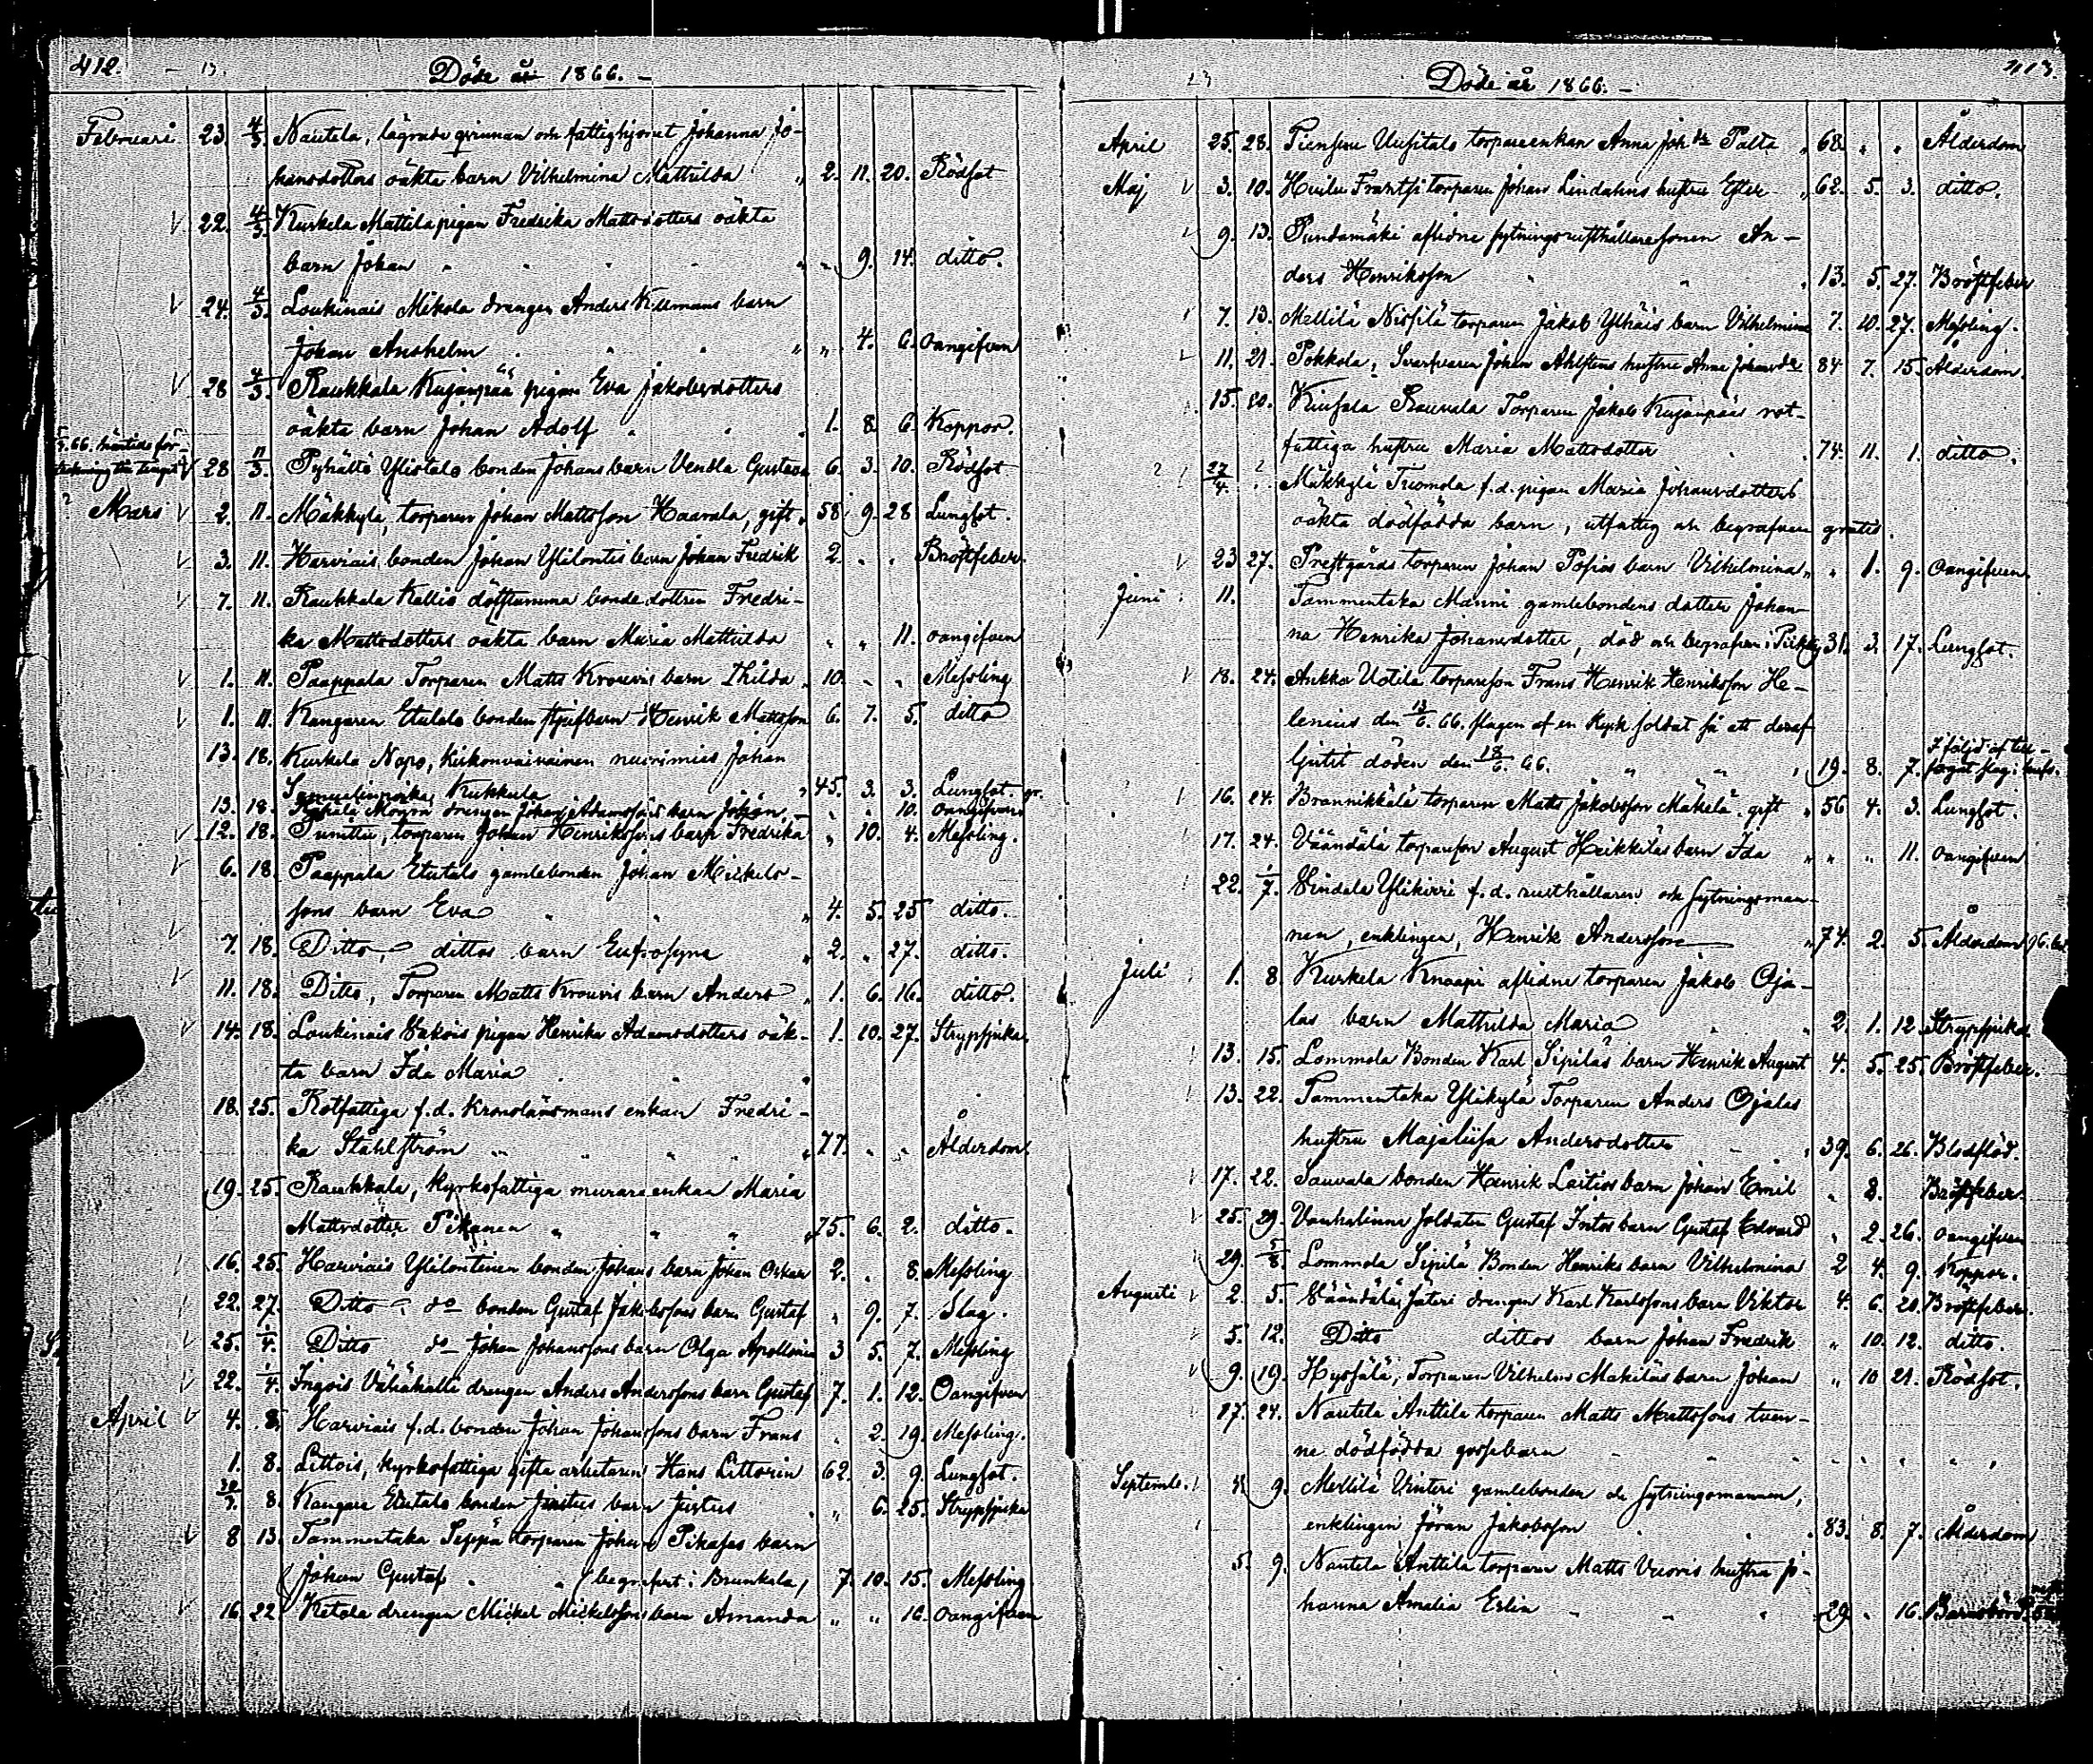 412.
Döde år 1866.
Februari 23. 4/3. Nautela, lägrade qvinnan och fattighjonet Johanna Jo-
hansdotters oäkta barn Vilhelmina Mathilda " 2. 11. 20. Rödsot
22. 4/3. Kurkela Mattila pigan Fredrika Mattsdotters oäkta
barn Johan " " 9. 14. ditto.
24. 4/3. Loukinais Mikola drengen Anders Killmans barn
Johan Anshelm " " 4. 6. Oangifven
28 4/3. Raukkala Kujanpää pigan Eva Jakobsdotters
oäkta barn Johan Adolf 1. 8. 6. Koppor.
28 11/3. Pyhältö Ylistalo bonden Johans barn Vendla Gustava 6. 3. 10. Rödsot
Mars 2. 11. Mäkkylä, torparen Johan Mattsson Haavala, gift " 58 9. 28 Lungsot.
3. 11. Harviais bonden Johan Ylilontis barn Johan Fredrik 2. " " Bröstfeber.
7. 11. Raukkala Kallio döfstumma bondedottren Fredri-
ka Mattsdotters oäkta barn Maria Mathilda " " 11. oangifven
1. 11. Paappala Torparen Matts Krouvis barn Thilda " 10. " " Messling
1. 11. Kangaren Etutalo bonden styfbarn Henrik Mattsson 6. 7. 5. ditto
13. 18. Kurkela Napo, Kirkonvaivainen nuorimies Johan
Samuelinpoika Kukkula " 45. 3. 3. Lungsot.
13. 18. drengen Johan Adamssons barn Johan " " 10. oangifven
12. 18. torparen Johan Henrikssons barn Fredrika " 10. 4. Messling.
6. 18. Paappala Etutalo gamlebonden Johan Mickels-
sons barn Eva " 4. 5. 25 ditto.
7. 18. Ditto, dittos barn Eufrosyna " 2. " 27. ditto.
11. 18. Ditto, Torparen Matts Krouvis barn Anders " 1. 6. 16. ditto.
14. 18. Loukinais pigan Henrika Adamsdotters oäk- 1. 10. 27. Strypsjuka
ta barn Ida Maria
18. 25. Rotfattiga f.d. Kronolänsmans enkan Fredri-
ka Ståhlström " 77. " " Ålderdom
19. 25. Raukkala, kyrkofattiga murare enkan Maria
Mattsdotter " 75. 6. 2. ditto.
16. 25. Harviais Ylilontinen bonden Johans barn Johan Oskar 2. " 8. Messling
22. 27. Ditto do bonden Gustaf Jakobssons barn Gustaf " 9. 7. Slag.
25. 1/4. Ditto do Johan Johanssons barn Olga Apollonia 3 5. 7. Messling
22. 1/4. Ingois Vähäkalli drengen Anders Anderssons barn Gustaf 7. 1. 12. Oangifven
April 4. 8. Harviais f.d. bonden Johan Johanssons barn Frans " 2. 19. Messling.
1. 8. Littois, kyrkofattiga gifta arbetaren Hans Littorin 62. 3. 9. Lungsot.
8. Kangare Etutalo bonden Justus barn Justus " 6. 25. Strypsjuka
8. 13. Tammentaka Seppä torparen Johan barn
Johan Gustaf (begrafvet i Brunkala, 7. 10. 15. Messling
16. 22 Ketola drengen Mickel Mickelssons barn Amanda " " 16. oangifven
413.
Döde år 1866.
April 25. 28. Uusitalo torpareenkan Anna Johdr Palta " 68. " " Ålderdom
Maj 3. 10. Huilu torparen Johan Lindahns hustru Ester " 62. 5. 3. ditto.
9. 13. Pundamäki aflidne sytningsrusthållaresonen An-
ders Henriksson " 13. 5. 27. Bröstfeber
7. 13. Mellilä Nissilä torparen Jakob Ylhäis barn Vilhelmina 7. 10. 27. Messling.
11. 21. Pokkola, Svarfvaren Johan Ahlstens hustru Anna Johansdr 84 7. 15. Ålderdom.
15. 20. Rauvala Torparen Jakob Kujanpääs rot-
fattiga hustru Maria Mattsdotter 74. 11. 1. ditto.
27/4. Mäkkylä Tuomola f.d. pigan Maria Johansdotters
oäkta dödfödda barn, utfattig och begrafven gratis.
23 27. Prestgårds torparen Johan barn Vilhelmina " " 1. 9. Oangifven.
Juni 11. Tammentaka Manni gamlebondens dotter Johan-
na Henrika Johansdotter, död och begrafven i Piikkiö 31. 3. 17. Lungsot.
18. 24. Ankka Uotila torpareson Frans Henrik Henriksson He-
lenius den 13/6. 66. slagen af en rysk soldat så att deraf
ljutit döden den 18/6. 66. " 19. 8. 7. I följd af till-
fogat slag i hufv.
16. 24. Brannikkälä torparen Matts Jakobsson Mäkelä, gift " 56 4. 3. Lungsot.
17. 24. Väändälä torpareson August Heikkiläs barn Ida " " " 11. oangifven
22. 1/7. Ylikirri f.d. rusthållaren och sytningsman-
nen, enklingen, Henrik Andersson " 74. 2. 5. Ålderdom
Juli 1. 8. Kurkela Knaapi aflidne torparen Jakob Oja-
las barn Mathilda Maria " 2. 1. 12. Strypsjuka
13. 15. Lommola Bonden Karl Sipiläs barn Henrik August 4. 5. 25. Bröstfeber.
13. 22. Tammentaka Ylikylä Torparen Anders Ojalas
hustru Majalisa Andersdotter " 39. 6. 26. Blodflöd.
17. 22. Sauvala bonden Henrik Laitios barn Johan Emil " 8. Bröstfeber.
25. 29. Vanhalinna soldaten Gustaf Intos barn Gustaf Edvard " 2. 26. Oangifven
29. 5/8. Lommola Sipilä Bonden Henriks barn Vilhelmina 2 4. 9. Koppor.
Augusti 2. 5. Väändälä, Säteri drengen Karl Karlssons barn Viktor 4. 6. 20. Bröstfeber.
5. 12. Ditto dittos barn Johan Fredrik " 10. 12. ditto.
9. 19. Torparen Vilhelm Mäkiläs barn Johan " 10 21. Rödsot.
17. 24. Nautela Anttila torparen Matts Mattssons tven-
ne dödfödda gossebarn " " " "
Septemb. 4. 9. Mellilä Vinteri gamlebonden och sytningsmannen,
enklingen Jöran Jakobsson " 83. 8. 7. Ålderdom
5. 9. Nautela Anttila torparen Matts Vuoris hustru Jo-
hanna Amalia Erlin " 29. " 16. Barnsbörd